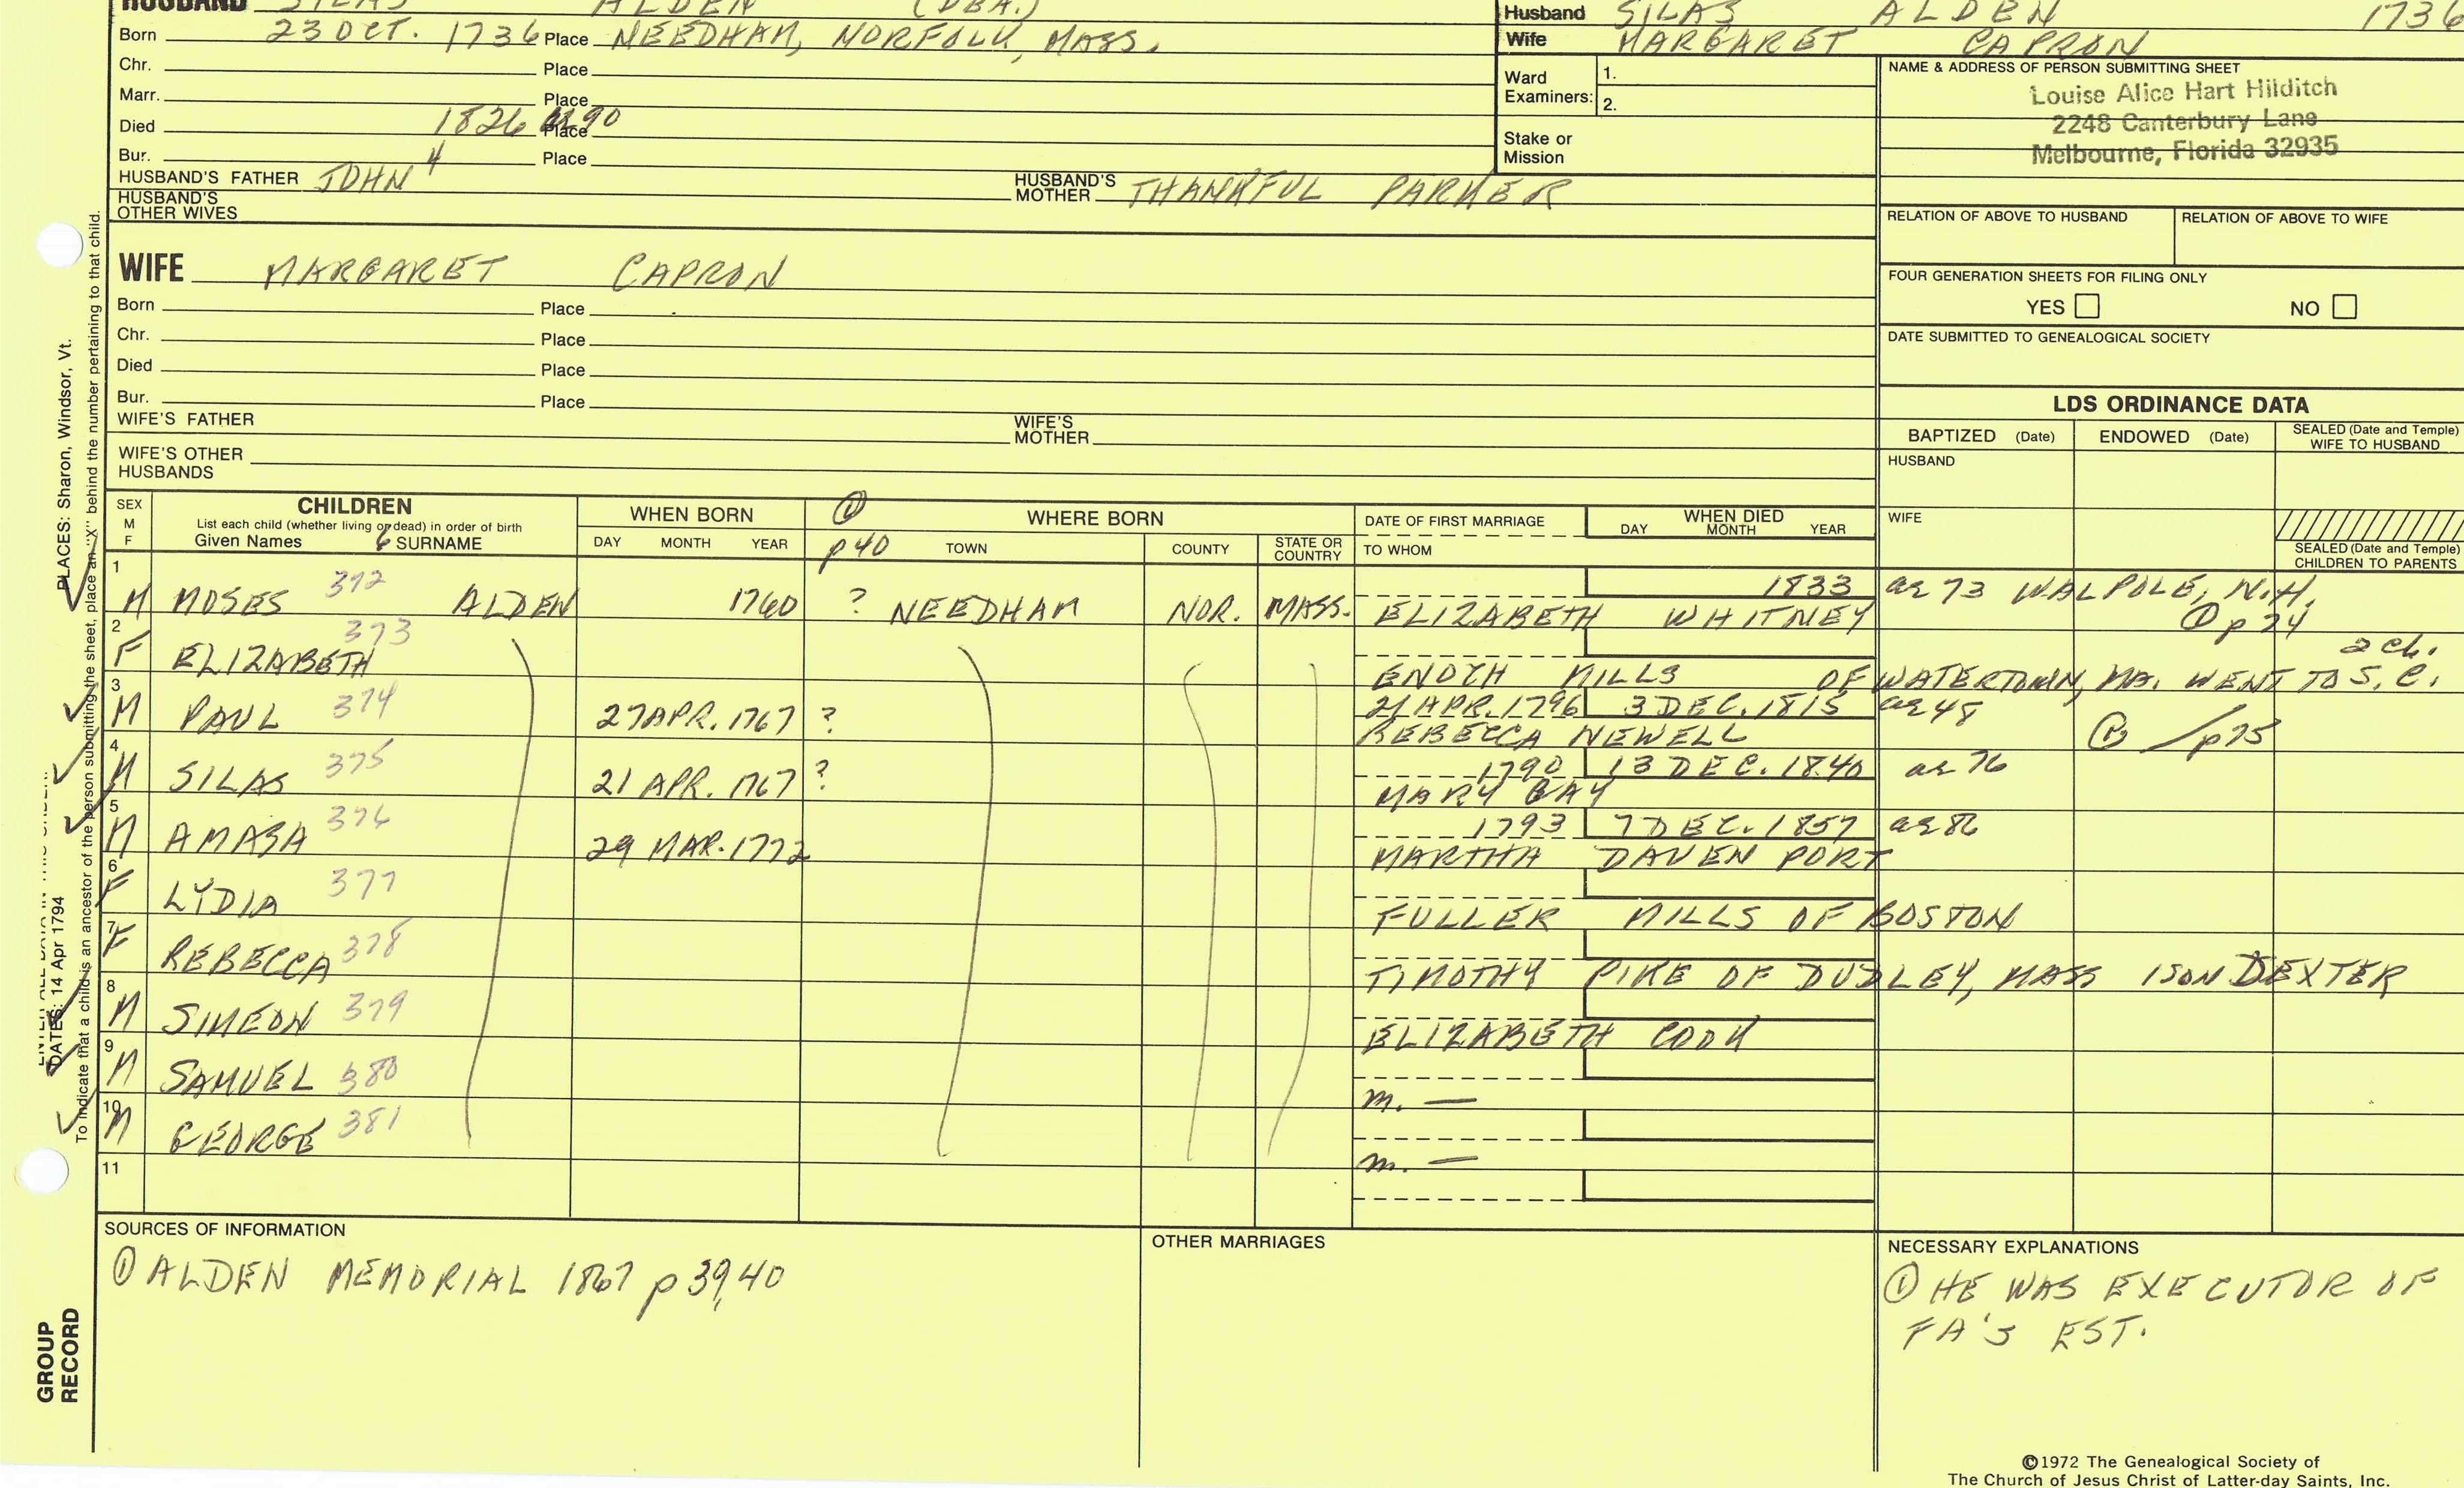 HUSBAND SILAS ALDEN (DEA.)
Born 23 OCT. 1736 Place NEEDHAM, NORFOLK, MASS.
Chr. Place
Marr. Place
Died 1826 Place ae 90
Bur. Place
HUSBAND'S FATHER JOHN 4 HUSBAND'S MOTHER THANKFUL PARKER
HUSBAND'S OTHER WIVES
Husband SILAS ALDEN 1736
Wife MARGARET CAPRON
Ward Examiners: 1.
2.
Stake or Mission
NAME & ADDRESS OF PERSON SUBMITTING SHEET
Louise Alice Hart Hilditch
2248 Canterbury Lane
Melbourne, Florida 32935
RELATION OF ABOVE TO HUSBAND RELATION OF ABOVE TO WIFE
FOUR GENERATION SHEETS FOR FILING ONLY
YES NO
DATE SUBMITTED TO GENEALOGICAL SOCIETY
WIFE MARGARET CAPRON
Born Place
Chr. Place
Died Place
Bur. Place
WIFE'S FATHER WIFE'S MOTHER
WIFE'S OTHER HUSBANDS
LDS ORDINANCE DATA
BAPTIZED (Date) ENDOWED (Date) SEALED (Date and Temple) WIFE TO HUSBAND
HUSBAND
WIFE
SEALED (Date and Temple) CHILDREN TO PARENTS
SEX M F
CHILDREN
List each child (whether living or dead) in order of birth
Given Names 6 SURNAME
WHEN BORN
DAY MONTH YEAR
① p 40
WHERE BORN
TOWN COUNTY STATE OR COUNTRY
DATE OF FIRST MARRIAGE
TO WHOM
WHEN DIED
DAY MONTH YEAR
1 M MOSES 372 ALDEN 1760 ? NEEDHAM NOR. MASS. 1833 ae 73 WALPOLE, N.H.
ELIZABETH WHITNEY ① p 74
2 F ELIZABETH 373 2 ch.
ENOCH MILLS OF WATERTOWN, MA. WENT TO S.C.
3 M PAUL 374 27 APR. 1767 ? 21 APR. 1796 3 DEC. 1815 ae 48
REBECCA NEWELL p75
4 M SILAS 375 21 APR. 1767 ? 1790 13 DEC. 1840 ae 76
MARY GAY
5 M AMASA 376 29 MAR. 1772 1793 7 DEC. 1857 ae 86
MARTHA DAVENPORT
6 F LYDIA 377
FULLER MILLS OF BOSTON
7 F REBECCA 378
TIMOTHY PIKE OF DUDLEY, MASS 1 SON DEXTER
8 M SIMEON 379
ELIZABETH COOK
9 M SAMUEL 380
m. —
10 M GEORGE 381
m. —
11
SOURCES OF INFORMATION
① ALDEN MEMORIAL 1867 p 39,40
OTHER MARRIAGES
NECESSARY EXPLANATIONS
① HE WAS EXECUTOR OF
FA'S EST.
©1972 The Genealogical Society of
The Church of Jesus Christ of Latter-day Saints, Inc.
PLACES: Sharon, Windsor, Vt.
DATES: 14 Apr 1794
To indicate that a child is an ancestor of the person submitting the sheet, place an "X" behind the number pertaining to that child.
GROUP
RECORD